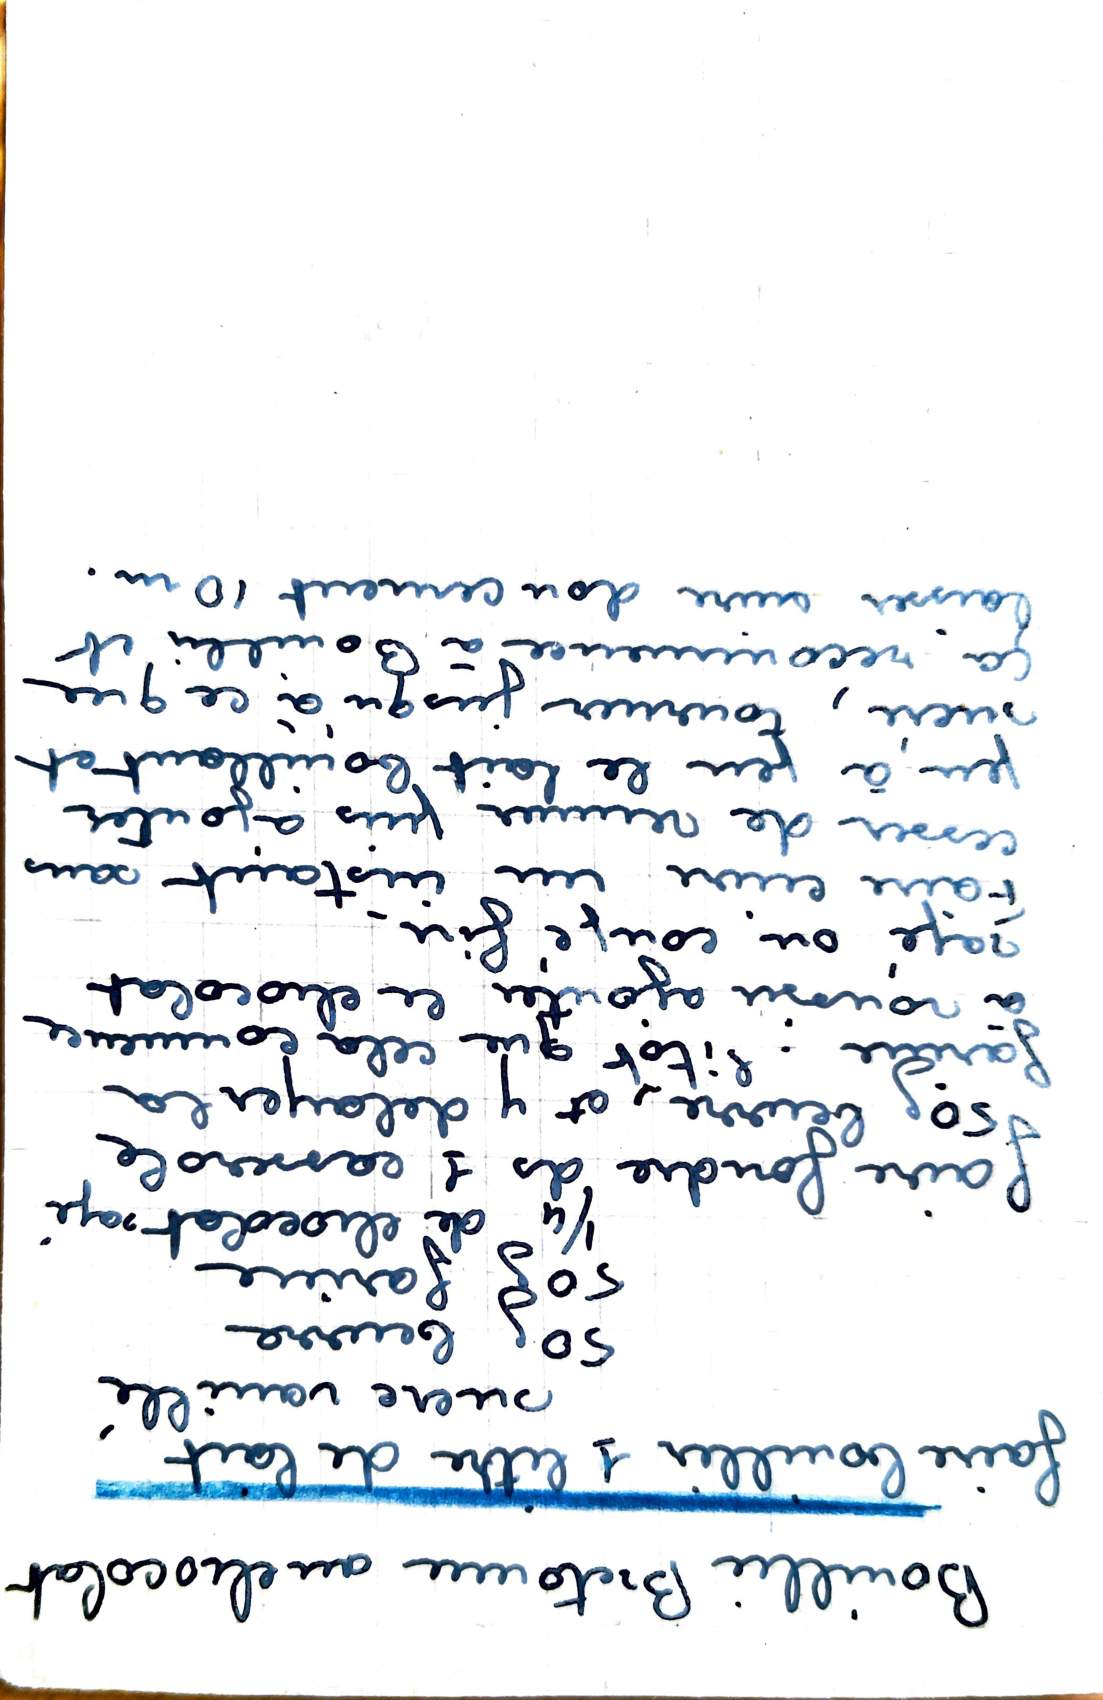 Bouillie Bretonne au chocolat
faire bouillir 1 litre de lait
sucre vanillé
50g beurre
50g farine
1/4 de chocolat rapé
faire fondre ds 1 casserole
50g beurre, et y delayer la
farine . Sitot que cela commence
à roussir ajouter le chocolat
rapé ou coupé fin -
Faire cuire un instant sans
cesser de remuer puis ajouter
peu à peu le lait bouillant et
sucré, tourner jusqu'à ce que
ça recommence à Bouillir et
laisser cuire doucement 10 m.